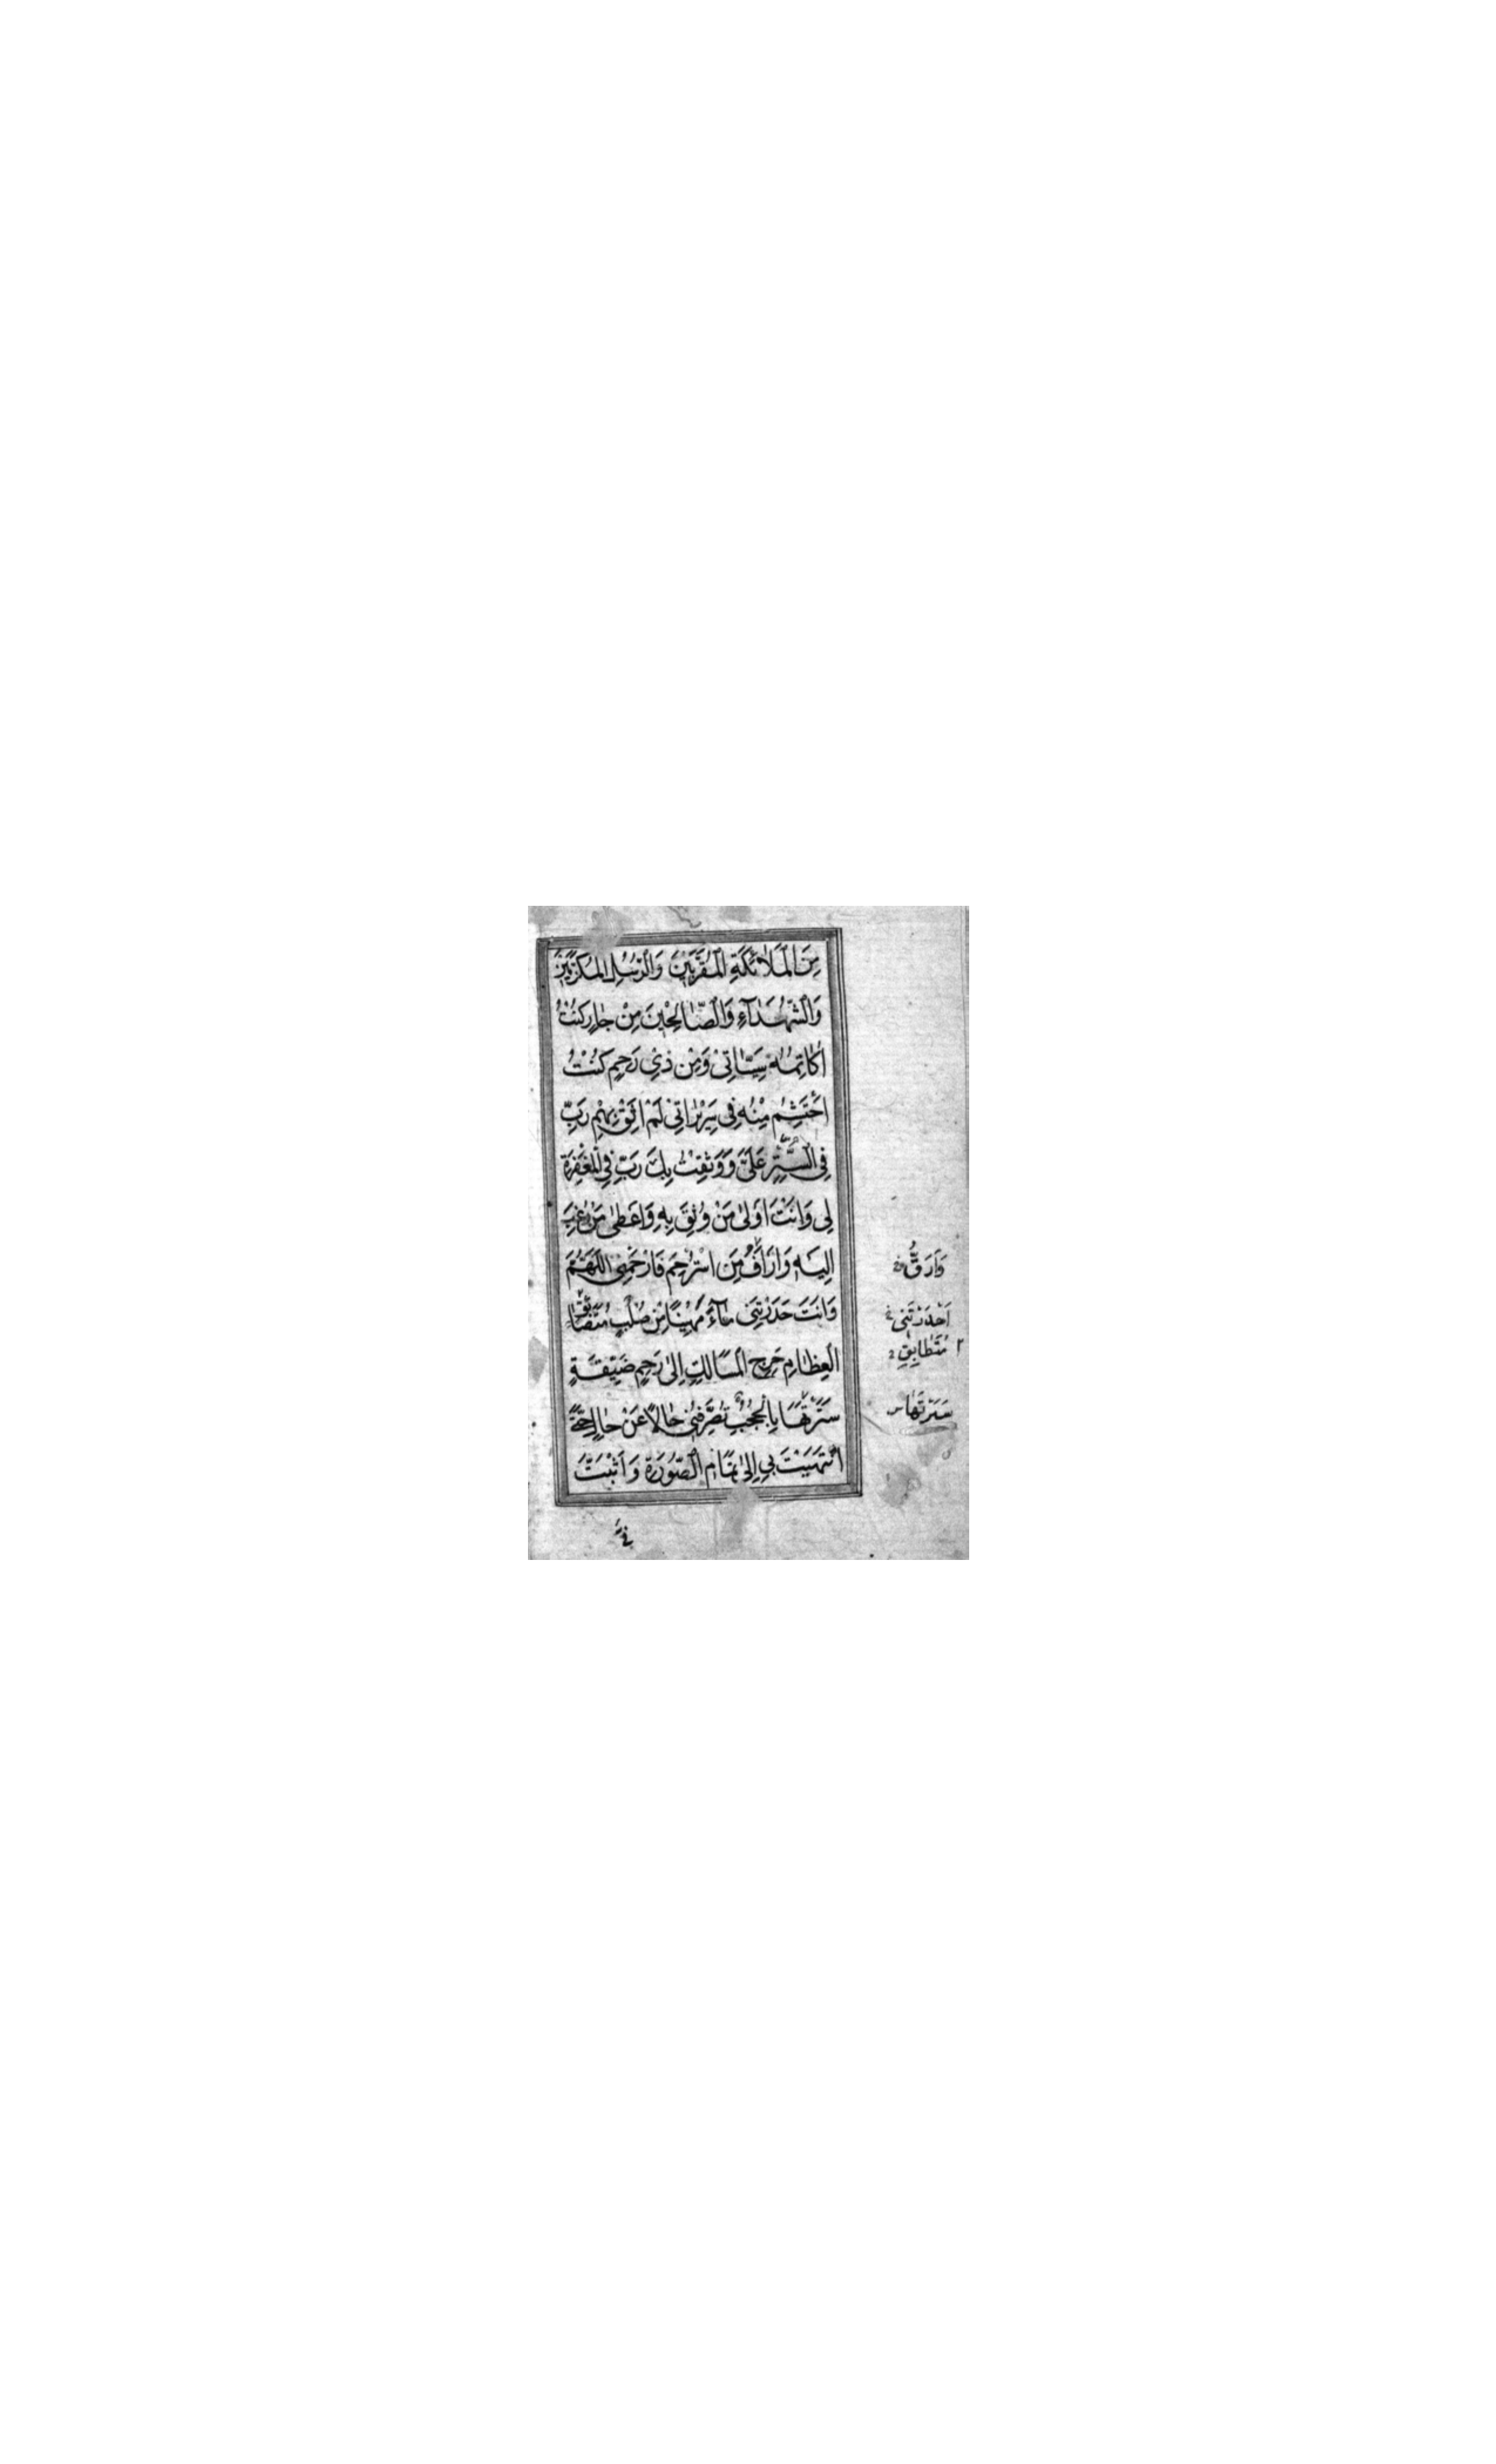 مِنَ الْمَلَائِكَةِ الْمُقَرَّبِينَ وَالرُّسُلِ الْمُكَرَّمِينَ
وَالشُّهَدَآءِ وَالصَّالِحِينَ مِنْ جَارٍ كُنْتُ
اُكَاتِمُهُ سَيِّئَاتِي وَمِنْ ذِي رَحِمٍ كُنْتُ
اَحْتَشِمُ مِنْهُ فِي سَرِيرَاتِي لَمْ اَثِقْ بِهِمْ رَبِّ
فِي السَّتْرِ عَلَيَّ وَوَثِقْتُ بِكَ رَبِّ فِي الْمَغْفِرَةِ
لِي وَاَنْتَ اَوْلٰى مَنْ وُثِقَ بِهِ وَاَعْطٰى مَنْ رُغِبَ
اِلَيْهِ وَاَرْاَفُ مَنِ اسْتُرْحِمَ فَارْحَمْنِي اَللّٰهُمَّ
وَاَنْتَ حَدَرْتَنِي مَآءً مَهِينًا مِنْ صُلْبٍ مُتَضَائِقِ
الْعِظَامِ حَرِجِ الْمَسَالِكِ اِلٰى رَحِمٍ ضَيِّقَةٍ
سَتَرْتَهَا بِالْحُجُبِ تُصَرِّفُنِي حَالًا عَنْ حَالٍ حَتّٰى
انْتَهَيْتَ بِي اِلٰى تَمَامِ الصُّورَةِ وَاَثْبَتَّ
وَاَرَقُّ
اَحْدَرْتَنِي
مُتَطَابِقِ
سَتَرْتَهَا